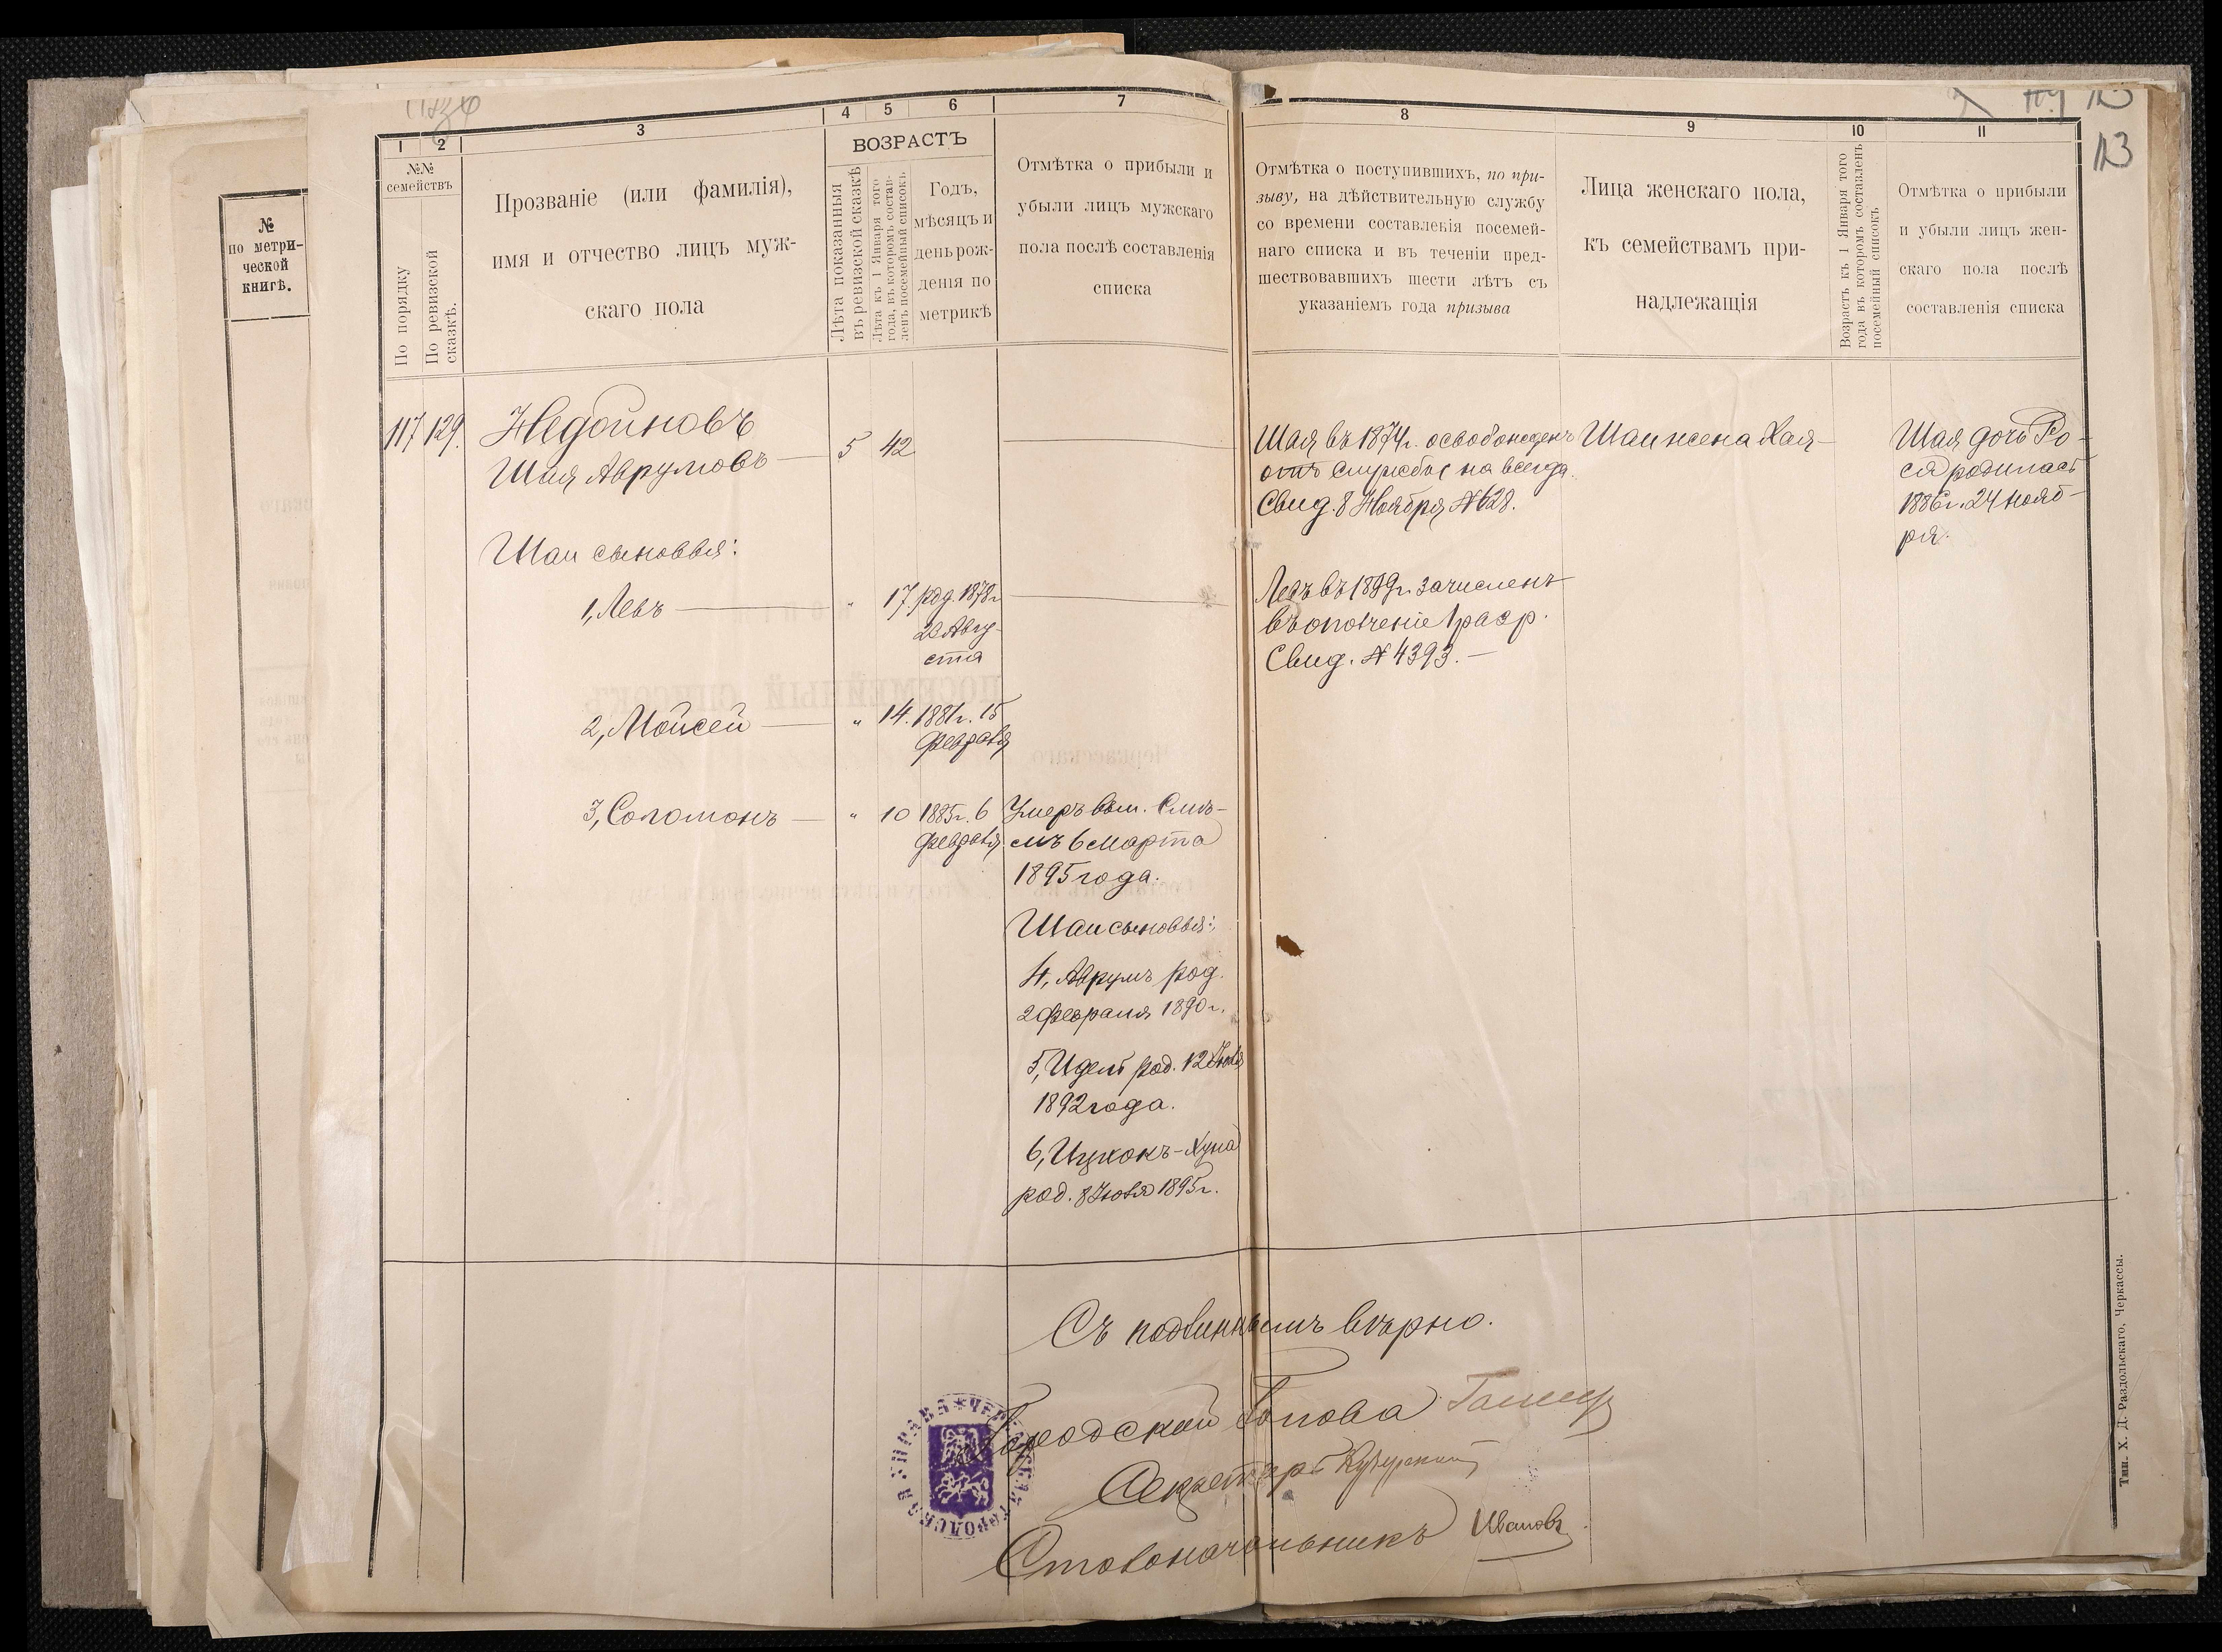 №
по метри-
ческой
книгѣ.
113
113
1
2
3
4
5
6
7
8
9
10
11
№№
семействъ
По порядку
По ревизской
сказкѣ.
Прозваніе (или фамилія),
имя и отчество лицъ муж-
скаго пола
ВОЗРАСТЪ
Лѣта показанныя
въ ревизской сказкѣ
Лѣта къ 1 Января того
года, въ которомъ состав-
ленъ посемейный списокъ
Годъ,
мѣсяцъ и
день рож-
денія по
метрикѣ
Отмѣтка о прибыли и
убыли лицъ мужскаго
пола послѣ составленія
списка
Отмѣтка о поступившихъ, по при-
зыву, на дѣйствительную службу
со времени составленія посемей-
наго списка и въ теченіи пред-
шествовавшихъ шести лѣтъ съ
указаніемъ года призыва
Лица женскаго пола,
къ семействамъ при-
надлежащія
Возрастъ къ 1 Января того
года въ которомъ составленъ
посемейный списокъ
Отмѣтка о прибыли
и убыли лицъ жен-
скаго пола послѣ
составленія списка
117 129.
Недойновъ
Шая Аврумовъ — 5 42
Шаи сыновья:
1, Левъ — " 17 род. 1878 г
20 Авгу-
ста
2, Мойсей — " 14. 1881 г. 15
февраля
3, Соломонъ — " 10 1885 г. 6
февраля
Умеръ вып.
съ 6 марта
1895 года.
Шаи сыновья:
4, Аврумъ род.
2 февраля 1890 г.
5, Идель род. 12
1892 года.
6, Ицхокъ-Хуна
род. 8 Іюля 1895 г.
Шая въ 1874 г. освобожденъ
отъ службы на всегда.
Свид. 8 Ноября № 628.
Левъ въ 1899 г. зачисленъ
въ ополченіе 1 разр.
Свид. № 4393. —
Шаи жена Хая —
Шая дочь Ро-
ся родилась
1886 г. 24 нояб-
ря.
Съ подлиннымъ вѣрно.
Городской Голова
Секретарь
Столоначальникъ Ивановъ
Тип. Х. Д. Раздольскаго, Черкассы.